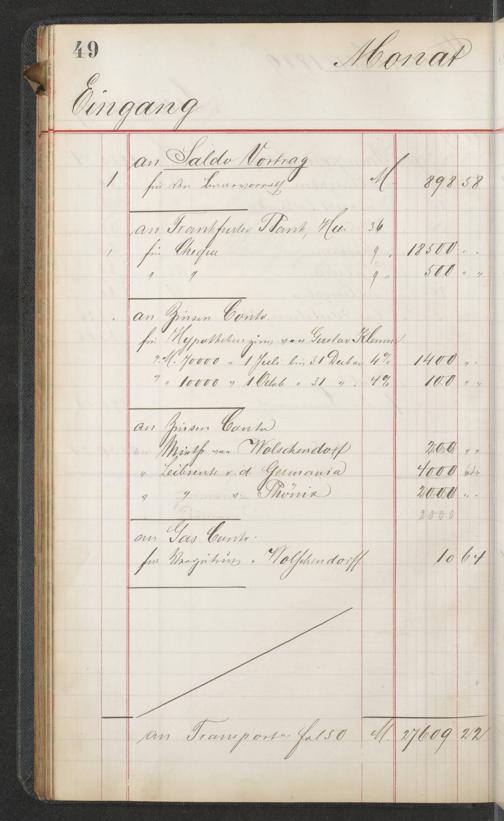 49
Monat
Eingang
an Saldo Vortrag
1 für den M. 898 58
an Frankfurter Bank, Hier 36
1 für Cheque 9 18500 " "
" " 9 500 " "
an Zinsen Conto
für Hypothekenzins von Gustav Klemm
v. M. 70000 " 1 Juli bis 31 Decbr 4% 1400 " "
" " 10000 " 1 Octob " 31 " 4% 100 " "
an Zinsen Conto
Miethe von Wolschendorf 200 " "
" Leibrente v. d. Germania 4000
" " " " Phönix 2000 " "
2000
an Gas Conto
für " Wolschendorff 10 64
an Transport a. fol 50 M. 27609 22